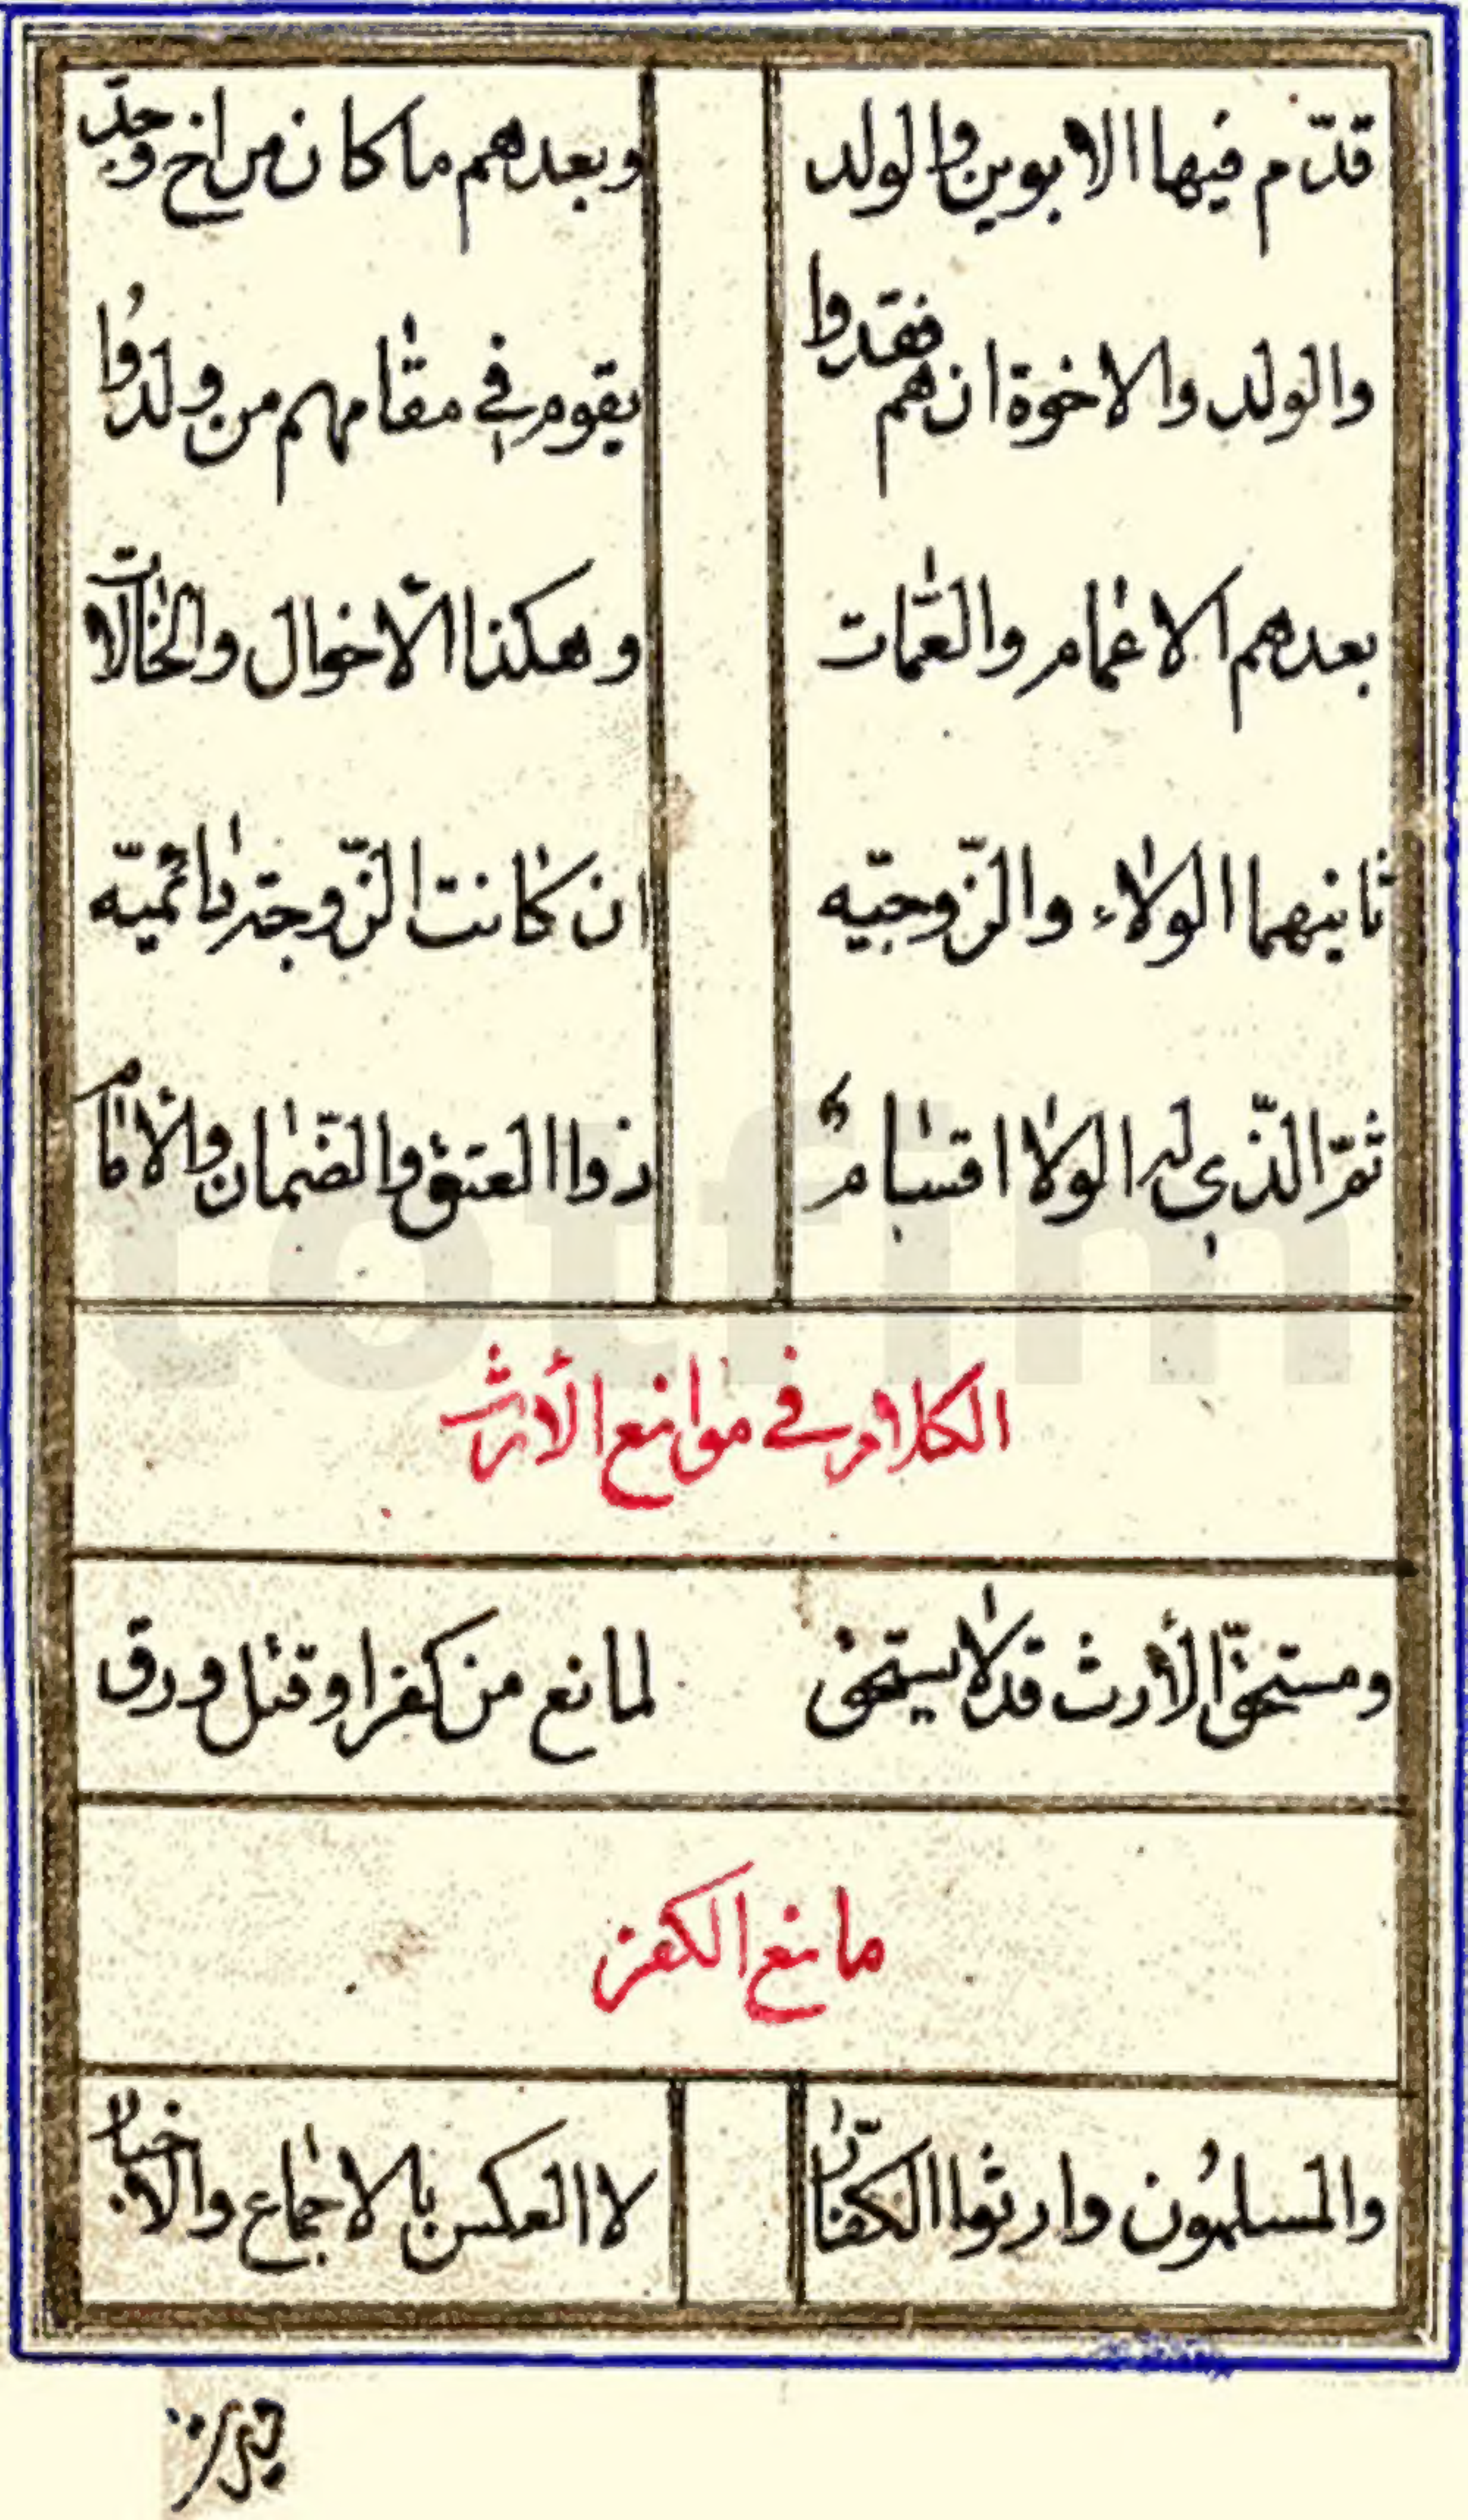 قدّم فيها الابوين والولد وبعدهم ما كان من اخ وجدّ
والولد والاخوة ان هم فقدوا يقوم في مقامهم من ولدُوا
بعدهم الاعمام والعمّات وهكذا الأخوال والخالات
ثانيهما الولاء والزّوجيّه ان كانت الزّوجة دائميّه
ثمّ الّذي له الولا اقسام ذوا العتق والضّمان والأمام
الكلام في موانع الأرث
ومستحقّ الأرث قد لا يستحق لمانع من كفر او قتل ورق
مانع الكفر
والمسلمُون وارثوا الكفّار لا العكس بالاجماع والاخبار
totfim